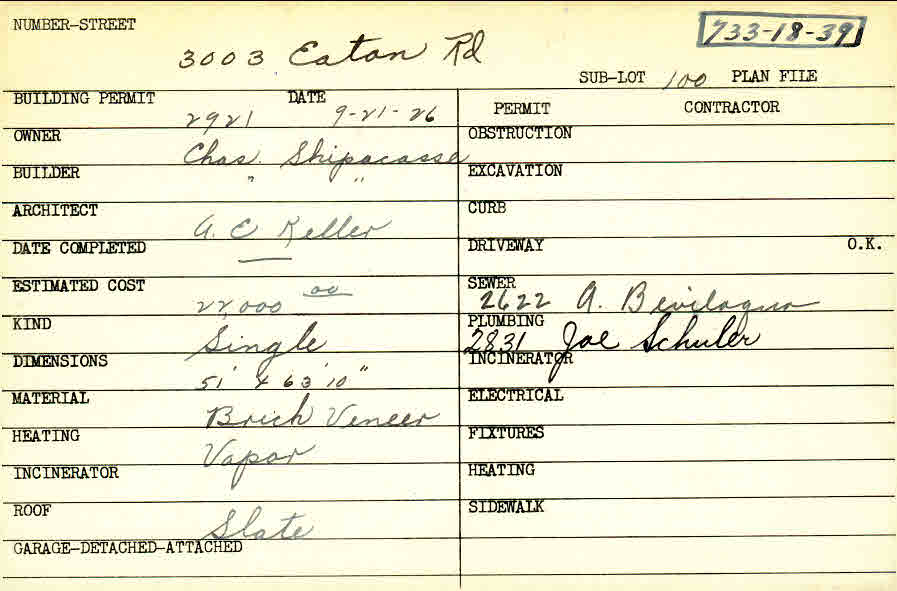 NUMBER-STREET 3003 Eaton Rd 733-18-39
SUB-LOT 100 PLAN FILE
BUILDING PERMIT 2921 DATE 9-21-26
PERMIT CONTRACTOR
OWNER Chas. Shipacasse
OBSTRUCTION
BUILDER " "
EXCAVATION
ARCHITECT A. C Keller
CURB
DATE COMPLETED —
DRIVEWAY O.K.
ESTIMATED COST 22,000 00
SEWER 2622 A. Bevilaqua
KIND Single
PLUMBING 2831 Joe Schuler
DIMENSIONS 51' x 63' 10"
INCINERATOR
MATERIAL Brick Veneer
ELECTRICAL
HEATING Vapor
FIXTURES
INCINERATOR
HEATING
ROOF Slate
SIDEWALK
GARAGE-DETACHED-ATTACHED